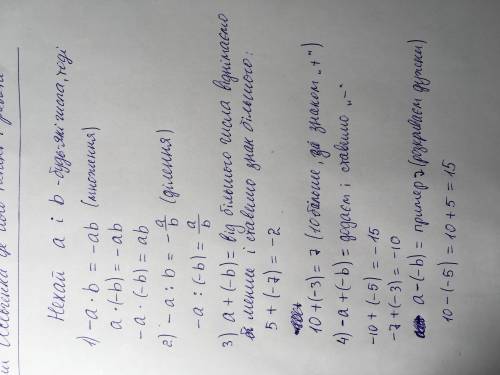 Нехай a і b - будь-які числа, тоді
1) -a · b = -ab (множення)
a · (-b) = -ab
-a · (-b) = ab
2) -a : b = -a/b (ділення)
-a : (-b) = a/b
3) a + (-b) = від більшого числа віднімаємо
менше і ставимо знак більшого:
5 + (-7) = -2
10 + (-3) = 7 (10 більше, зі знаком „+")
4) -a + (-b) = додаєм і ставимо „-"
-10 + (-5) = -15
-7 + (-3) = -10
a - (-b) = пример (розкриваєм дужки)
10 - (-5) = 10 + 5 = 15